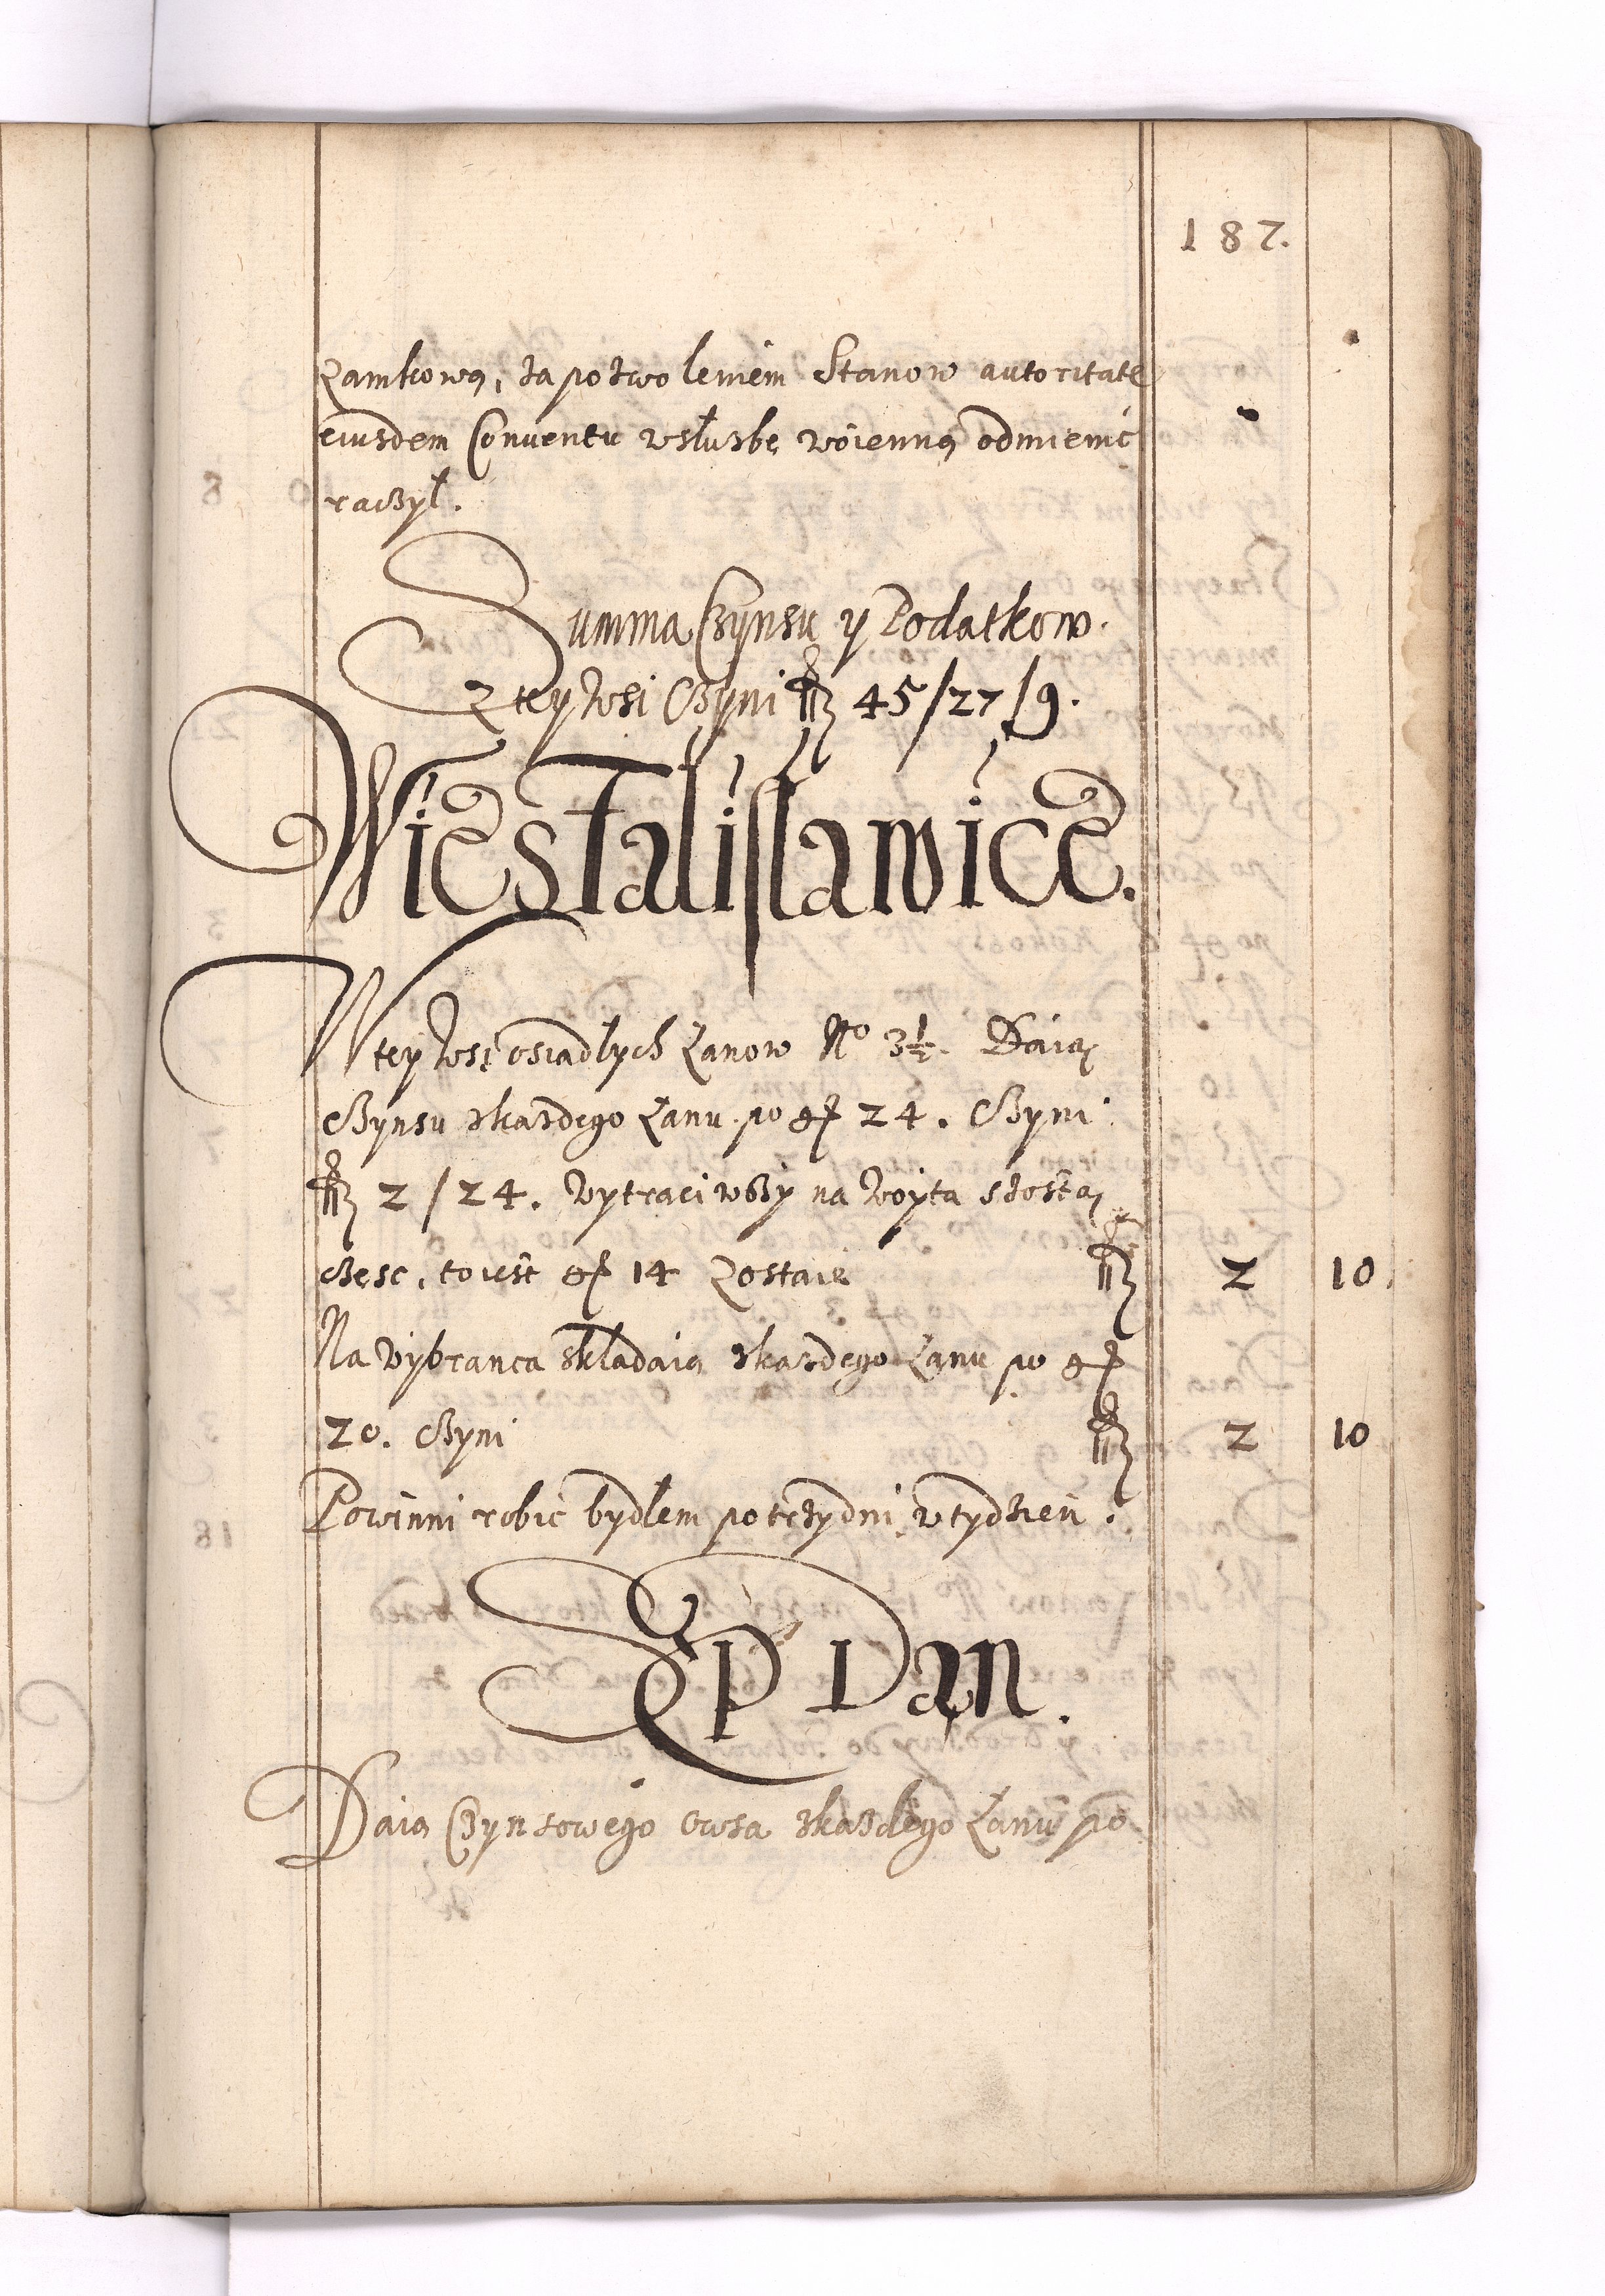 187.
Zamkową, za pozwoleniem Stanow autoritate
eiusdem Conuentu wsłusbę woienną odmienić
raczył.
Summa Czynsu y Podatkow.
Z tey wsi Czyni fl 45/27/9.
Wies Talisławice.
W tey wsi osiadłych Łanow No 3½. Daią
Czynsu zkazdego Łanu po gr 24. Czyni
fl 2/24. Wytraciwszy na Woyta szostą
Częsc, to iest gr 14 Zostaie fl 2 10.
Na Wybranca składaią zkazdego Łanu po gr
20. Czyni fl 2 10
Powinni robić bydłem po trzy dni w tydzień.
Sep Dan.
Daią Czynszowego Owsa zkazdego Łanu po